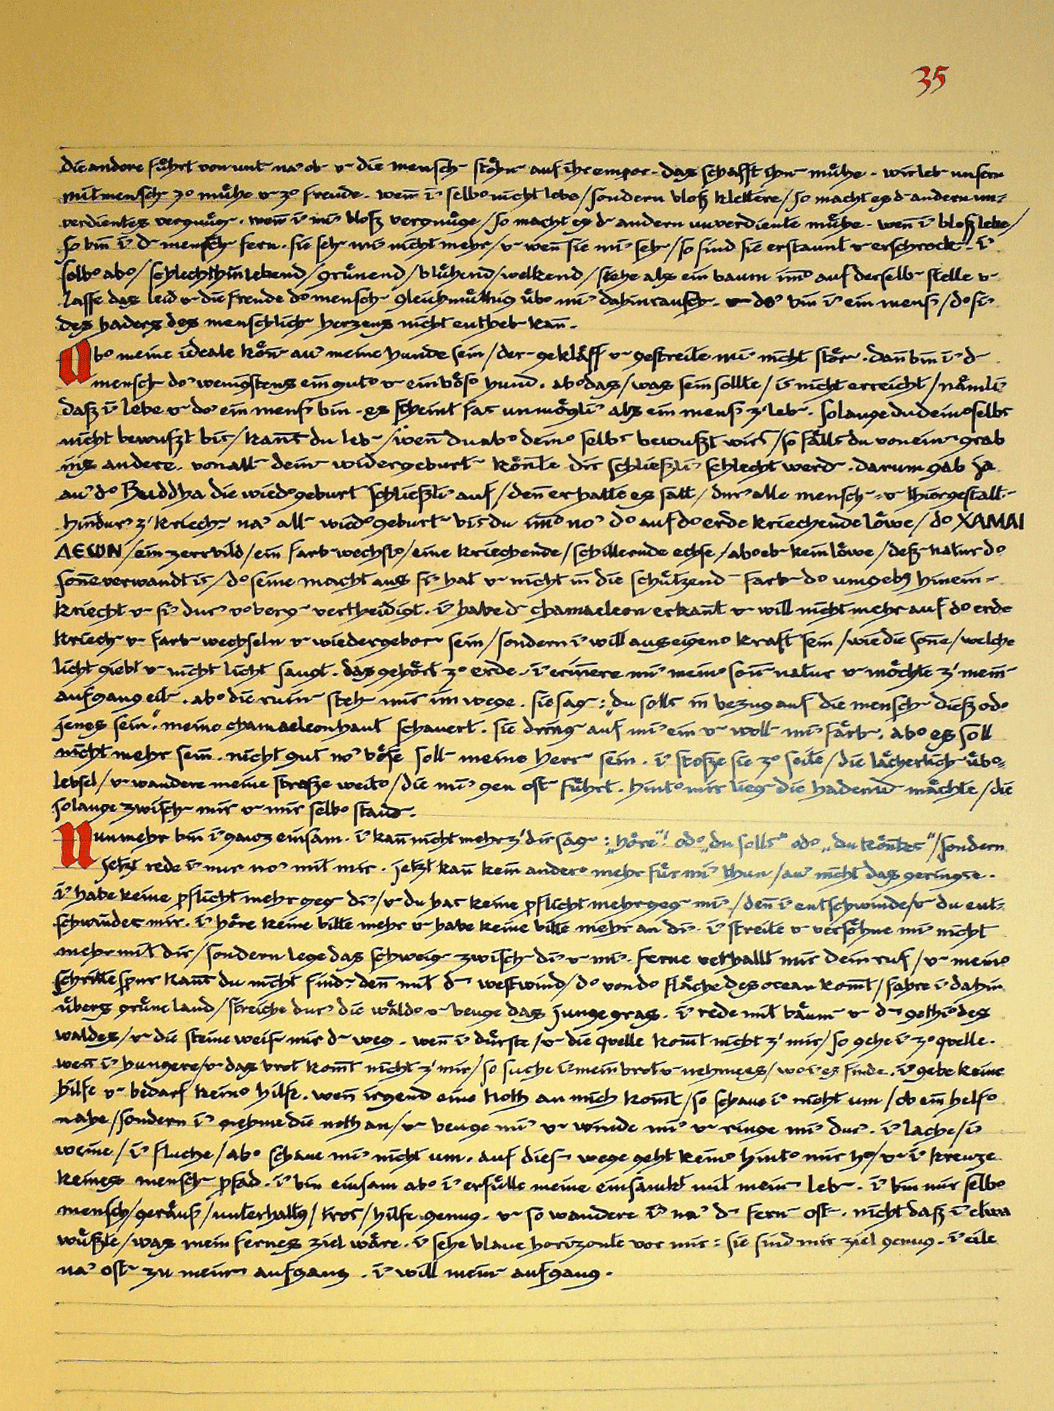 35
die andere führt von unt̄ na' ob v die mensch stöh̄r auf ihr empor. das schafft ihn mühe. wir leb unsern
mit mensch zo mühe v zo freude. wen̄ i' selbo nicht lebe/sondern bloß klettere/so macht es d' andern un-
verdientes vergnüg. wen̄ i' mi' bloß vergnüge/so macht es d' andern unverdiente mühe. wen̄ i' bloß lebe/
so bin i' d' mensch fern. sie seh mi' nicht mehr/v wen̄ sie mi' seh/so sind sie erstaunt v erschrock. i'
selbo abo/schlechthin lebend/grünend/blühend/welkend/stehe als ein baum im̄o auf derselb stelle v
lasse das leid v die freude do mensch gleichmüthig übo mi' dahinrausch. v do' bin i' ein mens'/do si'
des haders des menschlich herzens nicht entheb kan̄.
Abo meine ideale kön̄ au' meine hunde sein/der gekläff v gestreite mi' nicht stör. dan̄ bin i' d'
mensch do wenigstens ein guto v ein böso hund. abo das/was sein sollte/is' nicht erreicht/nämli'
daß i' lebe v do' ein mens' bin. es scheint fas' unmögli' als ein mens' z' leb. solange du deino selbs'
nicht bewußt bis'/kan̄s' du leb/wen̄ du abo deino selbs' bewußt wirs'/so fälls' du von ein' grab
ins andere. von all dein' widergeburt kön̄te dir schließli' schlecht werd. darum gab ja
au' do Buddha die wiedogeburt schließli' auf/den̄ er hatte es satt/dur' alle mensch- v thiergestalt-
hindur' z' kriech. na' all wiedogeburt bis' du im̄o no' do auf do erde kriechende löwe/do XAMAI
ΛEΩN/ein zerrbild/ein farbwechslo/eine kriechende/schillernde echse/abo eb kein löwe/deß natur do
son̄e verwandt is'/do seine macht aus si' hat v nicht in die schützend farb do umgebg hinein-
kriecht v si' dur' voborg vertheidigt. i' habe d' chamaeleon erkan̄t v will nicht mehr auf do erde
kriech v farb wechseln v wiedergebor sein/sondern i' will aus eigeno kraft sein/wie die son̄e/welche
licht giebt v nicht licht saugt. das gehört zo erde. i' erin̄ere mi' meino son̄natur v möchte z' mein'
aufgang eil. abo die ruin steh mir im wege. sie sag: "du solls' in bezug auf die mensch dieß odo
jenes sein." meine chamaeleonhaut schauert. sie dring auf mi' ein v woll mi' färb. abo es soll
nicht mehr sein. nicht gut no' böse soll meine herr sein. i' stoße sie zo seite/die lächerlich übo-
lebsel/v wandere meine straße weito/die mi' gen ost führt. hinto mir lieg die hadernd mächte/die
solange zwisch mir v mir selbo stand.
Nunmehr bin i' ganz einsam. i' kan̄ nicht mehr z' dir sag: "höre"! odo "du solls'" odo "du kön̄tes'"/sondern
jetzt rede i' nur no' mit mir. jetzt kan̄ kein andero mehr für mi' thun/au' nicht das gerings'e.
i' habe keine pflicht mehr geg di'/v du has' keine pflicht mehr geg mi'/den̄ i' entschwinde/v du ent-
schwindes' mir. i' höre keine bitte mehr v habe keine bitte mehr an di'. i' streite v versöhne mi' nicht
mehr mit dir/sondern lege das schweig zwisch di' v mi'. ferne verhallt mir dein ruf/v meino
schritte spur kan̄s' du nicht find. den̄ mit d' westwind/do von do fläche des ocean kom̄t/fahre i' dahin
übers grüne land/streiche dur' die wäldo v beuge das junge gras. i' rede mit bäum v d' gethio des
waldes/v die steine weis mir d' weg. wen̄ i' dürste/v die quelle kom̄t nicht z' mir/so gehe i' zo quelle.
wen̄ i' hungere/v das brot kom̄t nicht z' mir/so suche i' mein brot v nehme es/wo i' es finde. i' gebe keine
hilfe v bedarf keino hilfe. wen̄ irgend eine noth an mich kom̄t/so schaue i' nicht um/ob ein helfo
nahe/sondern i' nehme die noth an/v beuge mi' v winde mi' v ringe mi' dur'. i' lache/i'
weine/i' fluche/abo schaue mi' nicht um. auf dies' wege geht keino hinto mir ho/v i' kreuze
keines mensch pfad. i' bin einsam abo i' erfülle meine einsamkt mit mein' leb. i' bin mir selbo
mensch/geräusch/unterhaltg/tros'/hilfe genug. v so wandere i' na' d' fern ost. nicht daß i' etwa
wüßte/was mein fernes ziel wäre. i' sehe blaue horizonte vor mir: sie sind mir ziel genug. i' eile
na' ost zu mein' aufgang. i' will mein' aufgang.